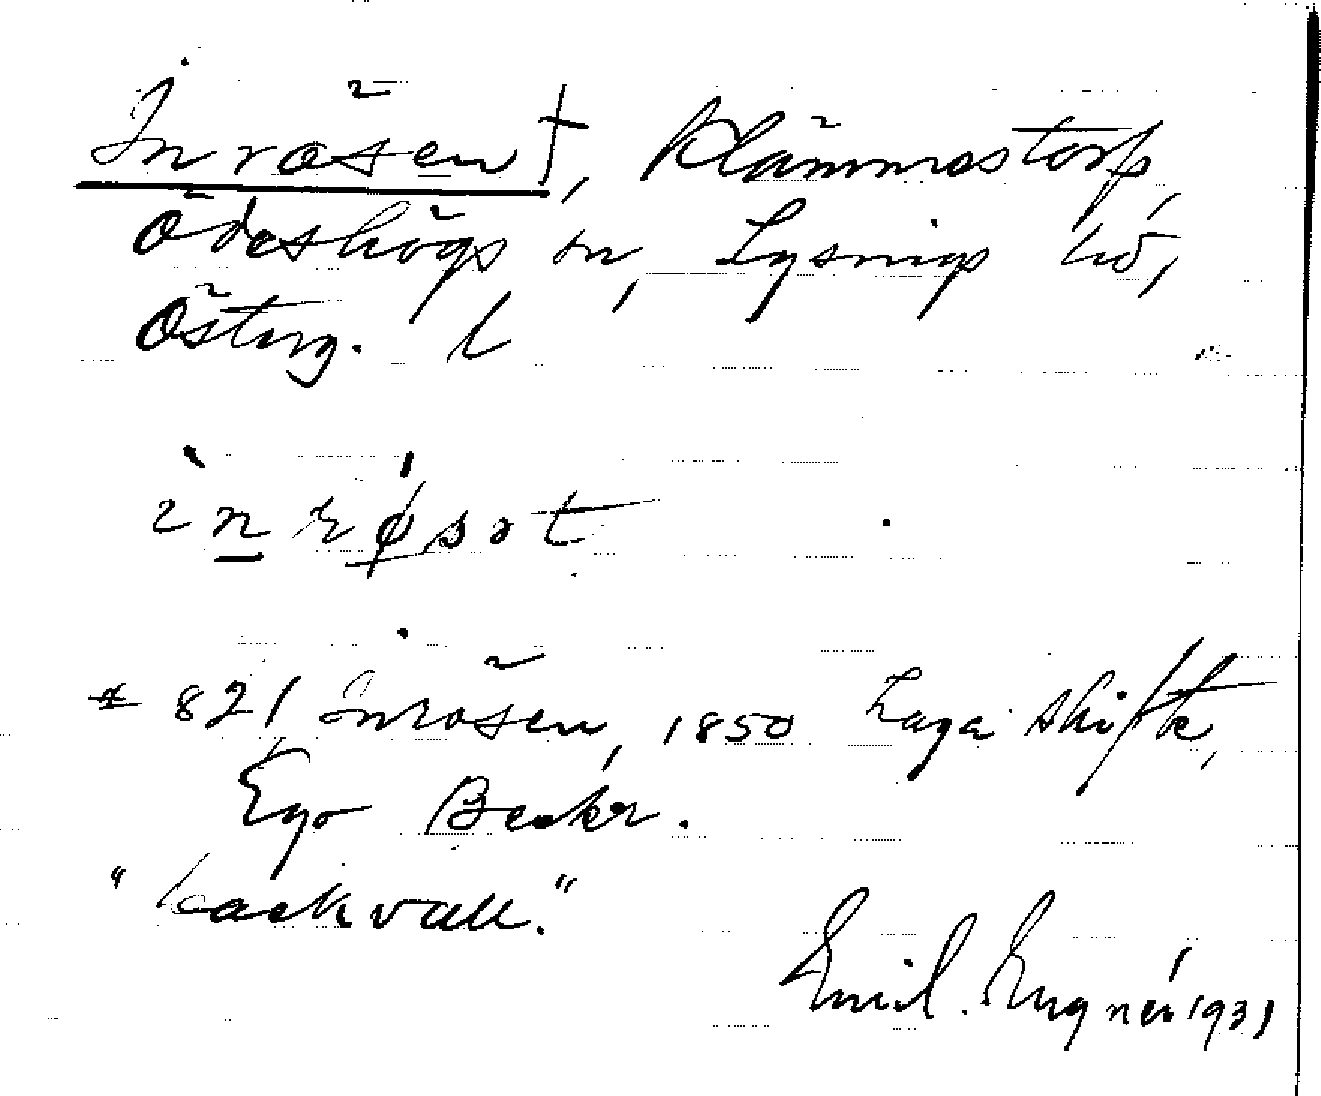 Inrösen †, Klämmestorp,
Ödeshögs sn, Lysings hd,
Österg. l
ìnrǿsət
* 821 Inrösen, 1850 Laga skifte,
Ego Beskr.
"backvall."
Emil. Engnér 1931